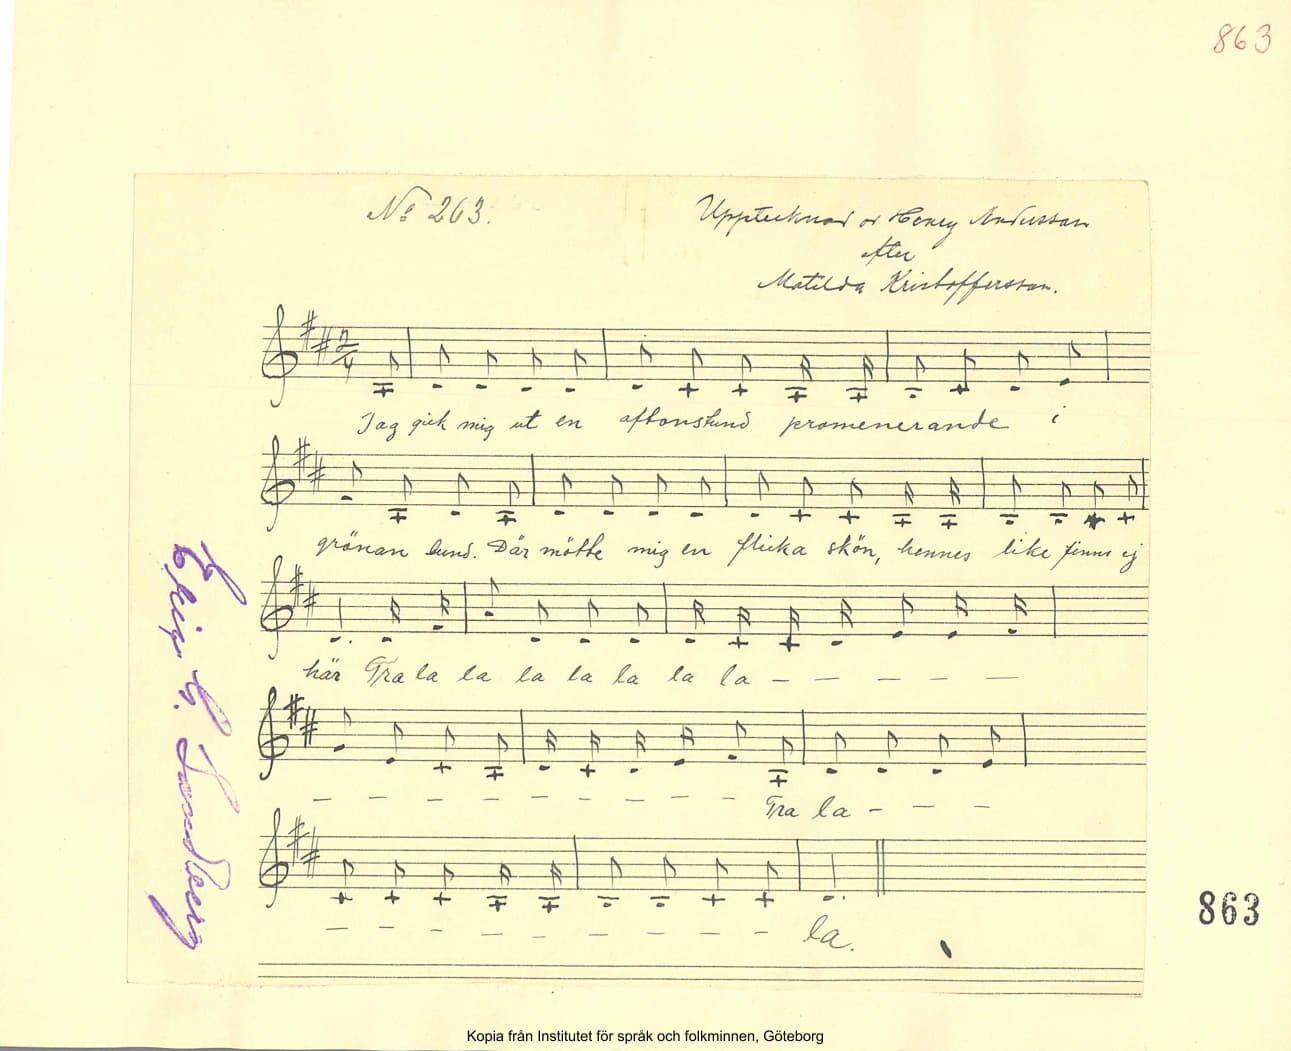 863
No 263.
Upptecknad av Henry Andersson
efter
Matilda Kristoffersson.
2/4
Jag gick mig ut en aftonstund promenerande i
grönan lund. Där mötte mig en flicka skön, hennes like finns ej
här Tra la la la la la la la – – – – –
– – – – – – – – – Tra la – – –
– – – – – – – – – la.
Sandberg
863
Kopia från Institutet för språk och folkminnen, Göteborg